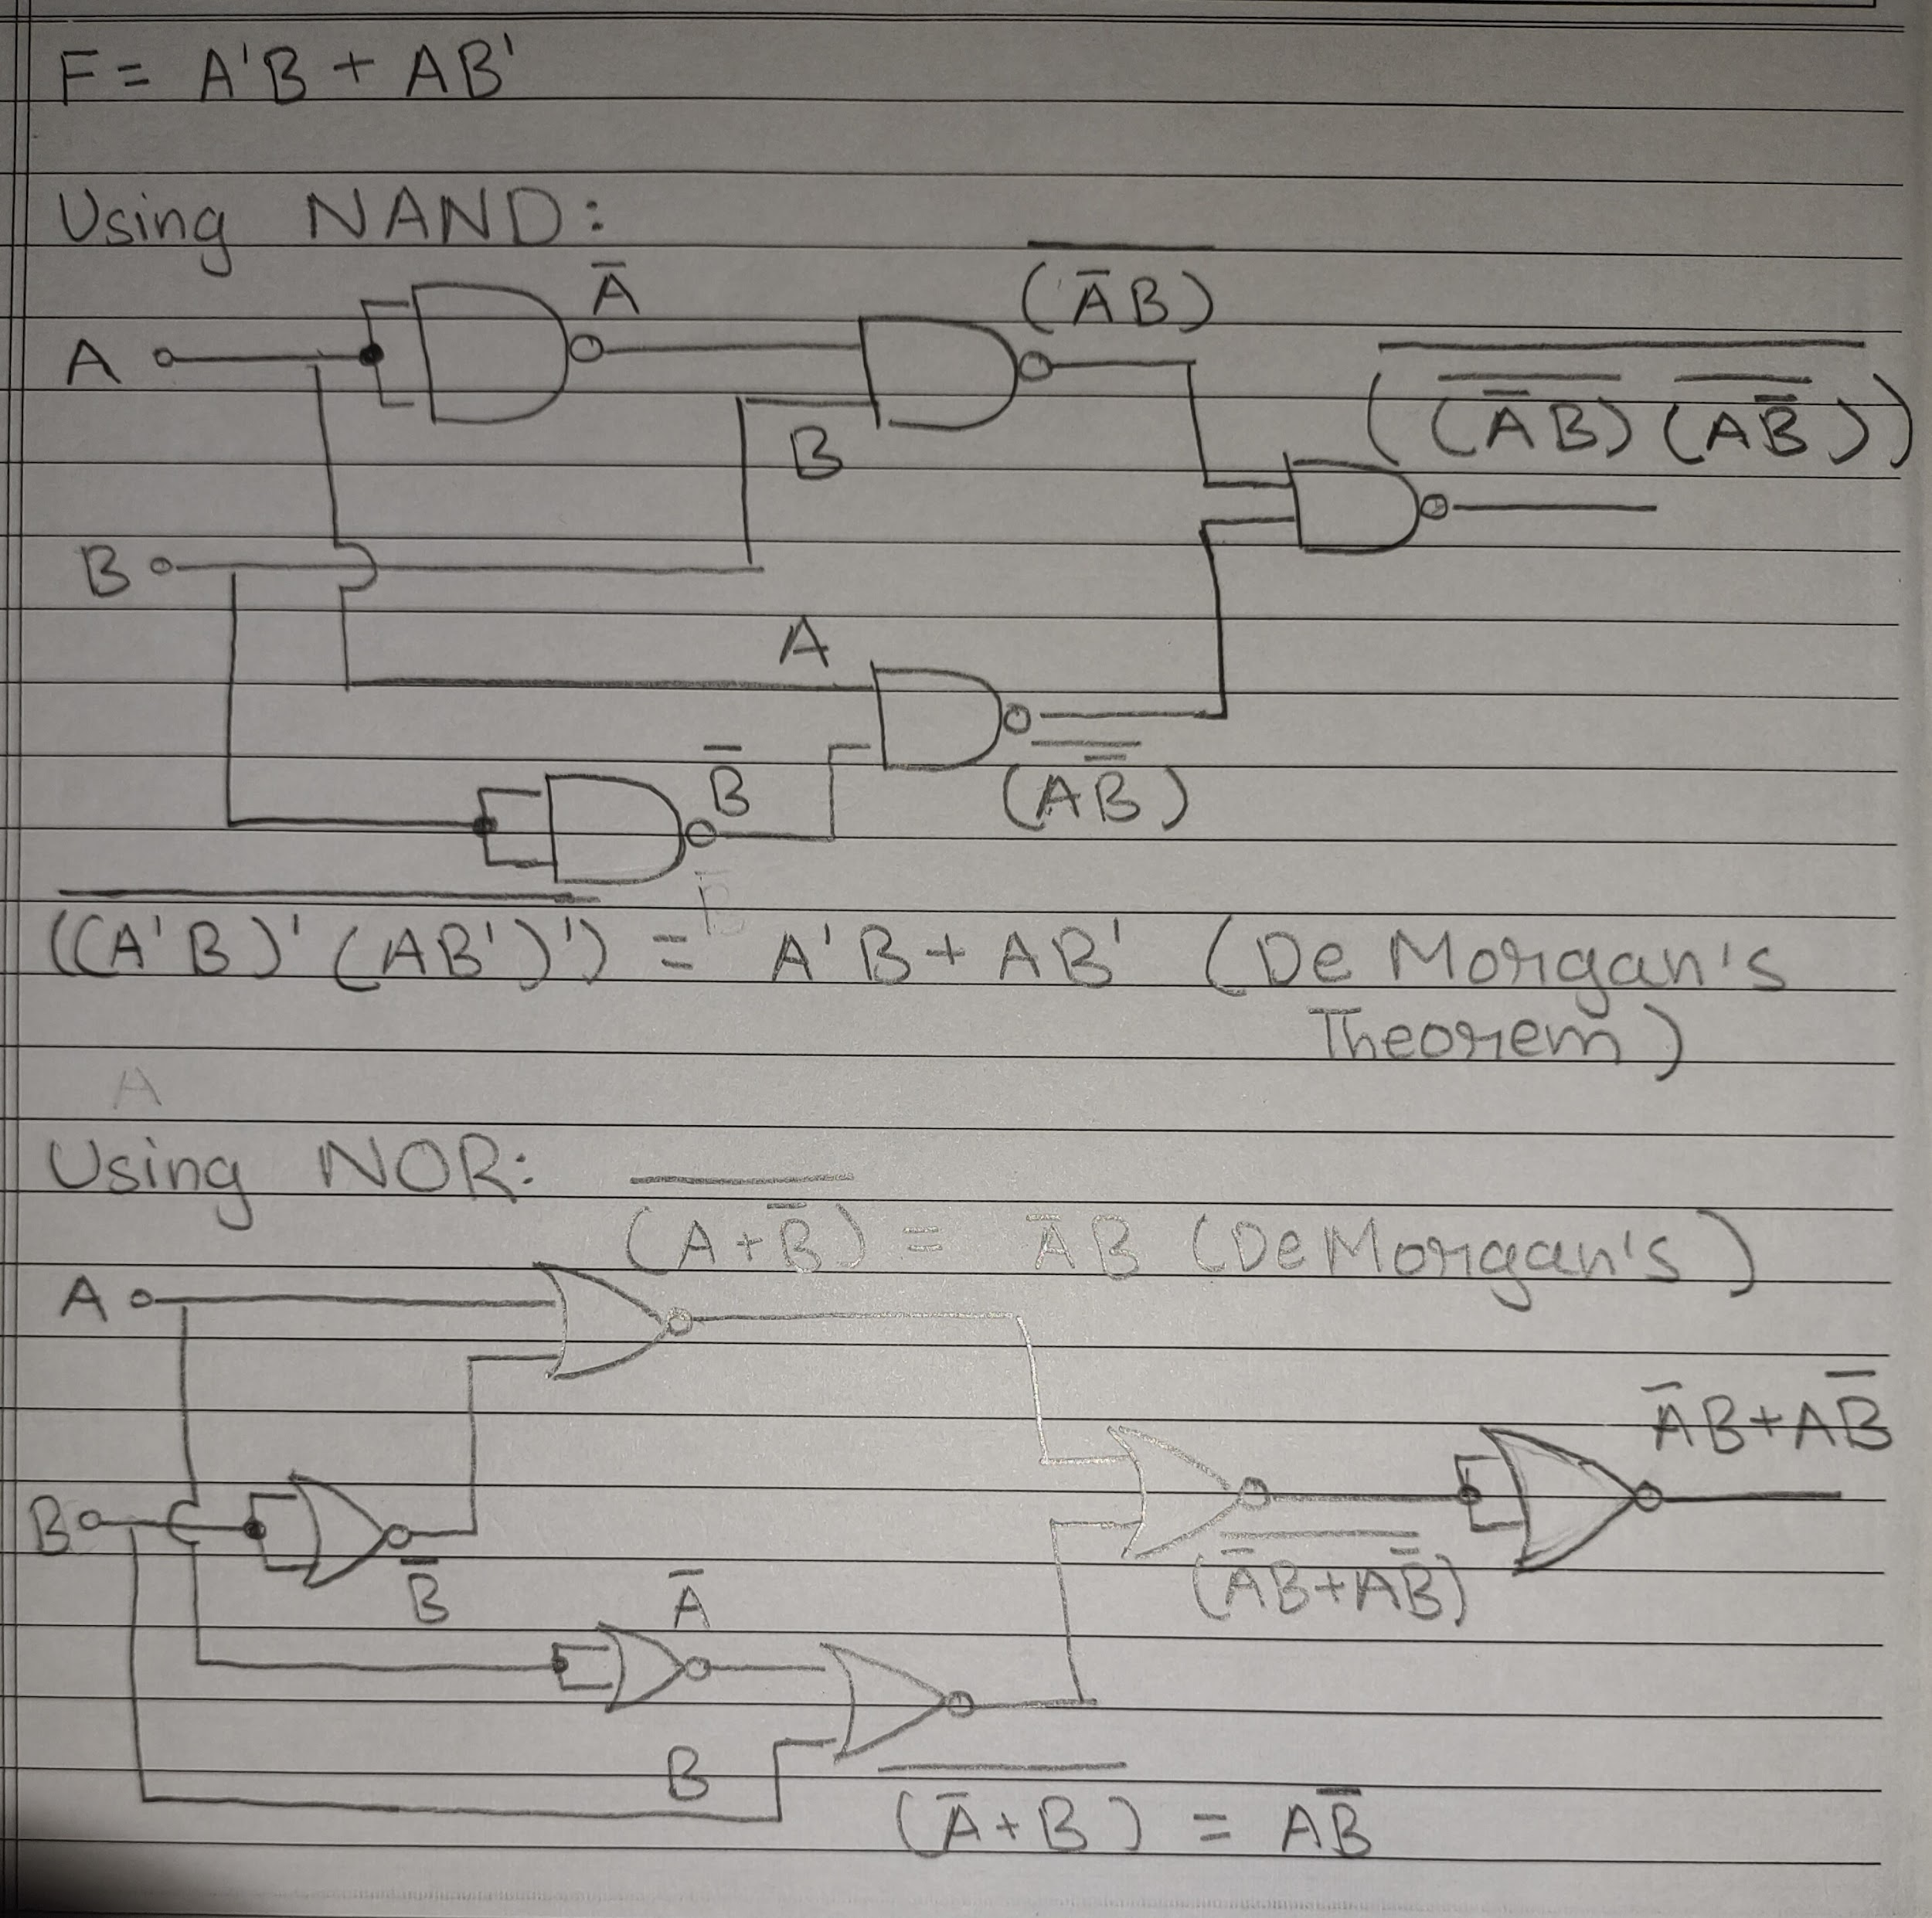 F = A'B + AB'
Using NAND:
A̅
(A̅B)̅
A
((A̅B)̅ (AB̅)̅)̅
B
B
A
B̅
(AB̅)̅
((A'B)'(AB')')̅ = A'B + AB' (De Morgan's
Theorem)
A
Using NOR:
(A+B̅)̅ = A̅B (DeMorgan's)
A
A̅B+AB̅
B
B̅
A̅
(A̅B+AB̅)̅
B
(A̅+B)̅ = AB̅